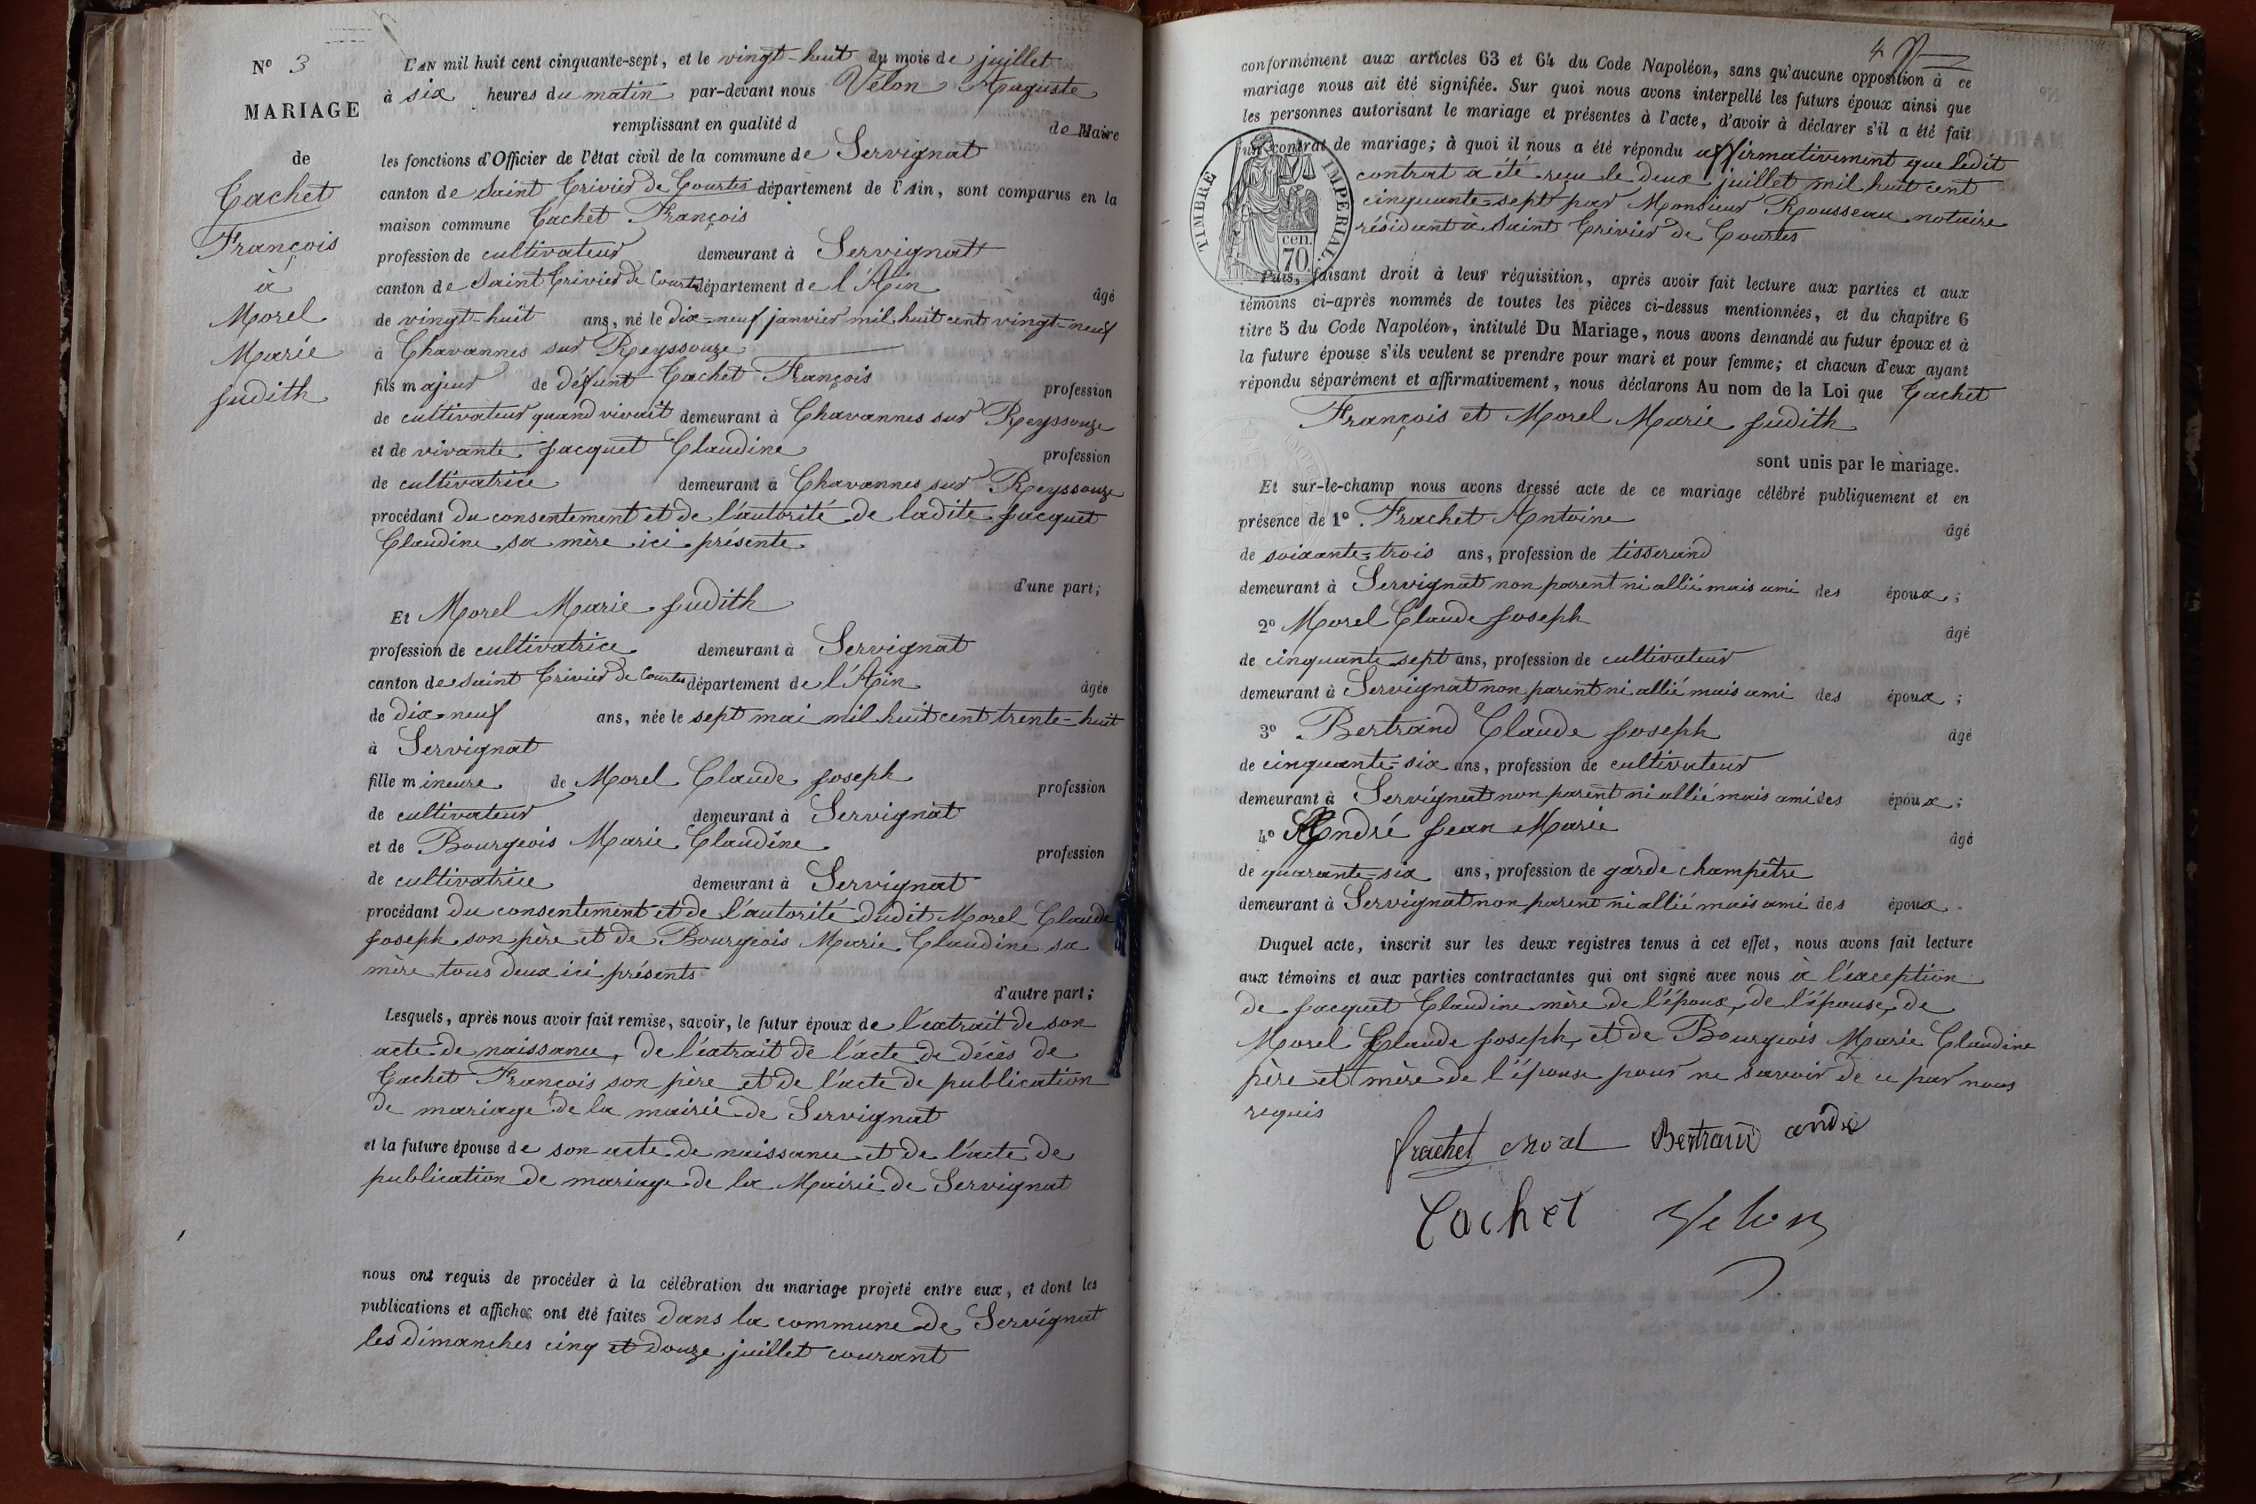 N° 3
MARIAGE
de
Cachet
François
à
Morel
Marie
Judith
L'AN mil huit cent cinquante-sept, et le vingt-huit du mois de juillet
à six heures du matin par-devant nous Velon Auguste
remplissant en qualité d de Maire
les fonctions d'Officier de l'état civil de la commune de Servignat
canton de Saint Trivier de Courtes département de l'Ain, sont comparus en la
maison commune Cachet François
profession de cultivateur demeurant à Servignat
canton de Saint Trivier de Courtes département de l'Ain âgé
de vingt-huit ans, né le dix-neuf janvier mil huit cent vingt-neuf
à Chavannes sur Reyssouze
fils majeur de défunt Cachet François profession
de cultivateur quand vivait demeurant à Chavannes sur Reyssouze
et de vivante Jacquet Claudine profession
de cultivatrice demeurant à Chavannes sur Reyssouze
procédant du consentement et de l'autorité de ladite Jacquet
Claudine sa mère ici présente
d'une part;
Et Morel Marie Judith
profession de cultivatrice demeurant à Servignat
canton de Saint Trivier de Courtes département de l'Ain âgée
de dix-neuf ans, née le sept mai mil huit cent trente-huit
à Servignat
fille mineure de Morel Claude Joseph profession
de cultivateur demeurant à Servignat
et de Bourgeois Marie Claudine profession
de cultivatrice demeurant à Servignat
procédant du consentement et de l'autorité dudit Morel Claude
Joseph son père et de Bourgeois Marie Claudine sa
mère tous deux ici présents
d'autre part;
Lesquels, après nous avoir fait remise, savoir, le futur époux de l'extrait de son
acte de naissance, de l'extrait de l'acte de décès de
Cachet François son père et de l'acte de publication
de mariage de la mairie de Servignat
et la future épouse de son acte de naissance et de l'acte de
publication de mariage de la Mairie de Servignat
nous ont requis de procéder à la célébration du mariage projeté entre eux, et dont les
publications et affiches ont été faites dans la commune de Servignat
les dimanches cinq et douze juillet courant
4
conformément aux articles 63 et 64 du Code Napoléon, sans qu'aucune opposition à ce
mariage nous ait été signifiée. Sur quoi nous avons interpellé les futurs époux ainsi que
les personnes autorisant le mariage et présentes à l'acte, d'avoir à déclarer s'il a été fait
un contrat de mariage; à quoi il nous a été répondu affirmativement que ledit
contrat a été reçu le deux juillet mil huit cent
cinquante-sept par Monsieur Rousseau notaire
résidant à Saint Trivier de Courtes
TIMBRE IMPERIAL
cen.
70
Puis, faisant droit à leur réquisition, après avoir fait lecture aux parties et aux
témoins ci-après nommés de toutes les pièces ci-dessus mentionnées, et du chapitre 6
titre 5 du Code Napoléon, intitulé Du Mariage, nous avons demandé au futur époux et à
la future épouse s'ils veulent se prendre pour mari et pour femme; et chacun d'eux ayant
répondu séparément et affirmativement, nous déclarons Au nom de la Loi que Cachet
François et Morel Marie Judith
sont unis par le mariage.
Et sur-le-champ nous avons dressé acte de ce mariage célébré publiquement et en
présence de 1° Frachet Antoine âgé
de soixante-trois ans, profession de tisserand
demeurant à Servignat non parent ni allié mais ami des époux;
2° Morel Claude Joseph âgé
de cinquante sept ans, profession de cultivateur
demeurant à Servignat non parent ni allié mais ami des époux;
3° Bertrand Claude Joseph âgé
de cinquante-six ans, profession de cultivateur
demeurant à Servignat non parent ni allié mais ami des époux;
4° André Jean Marie âgé
de quarante-six ans, profession de garde champêtre
demeurant à Servignat non parent ni allié mais ami des époux.
Duquel acte, inscrit sur les deux registres tenus à cet effet, nous avons fait lecture
aux témoins et aux parties contractantes qui ont signé avec nous à l'exception
de Jacquet Claudine mère de l'époux, de l'épouse, de
Morel Claude Joseph, et de Bourgeois Marie Claudine
père et mère de l'épouse pour ne savoir de ce par nous
requis
frachet morel Bertrand andré
Cachet Velon